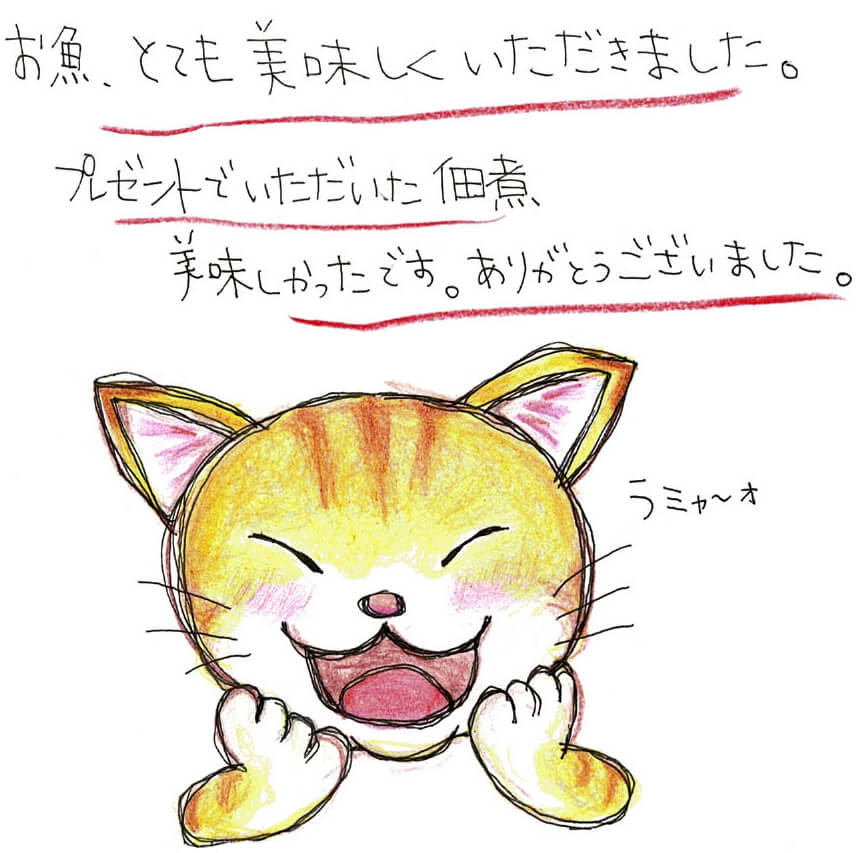 お魚、とても美味しくいただきました。
プレゼントでいただいた佃煮
美味しかったです。ありがとうございました。
うミャ〜ォ